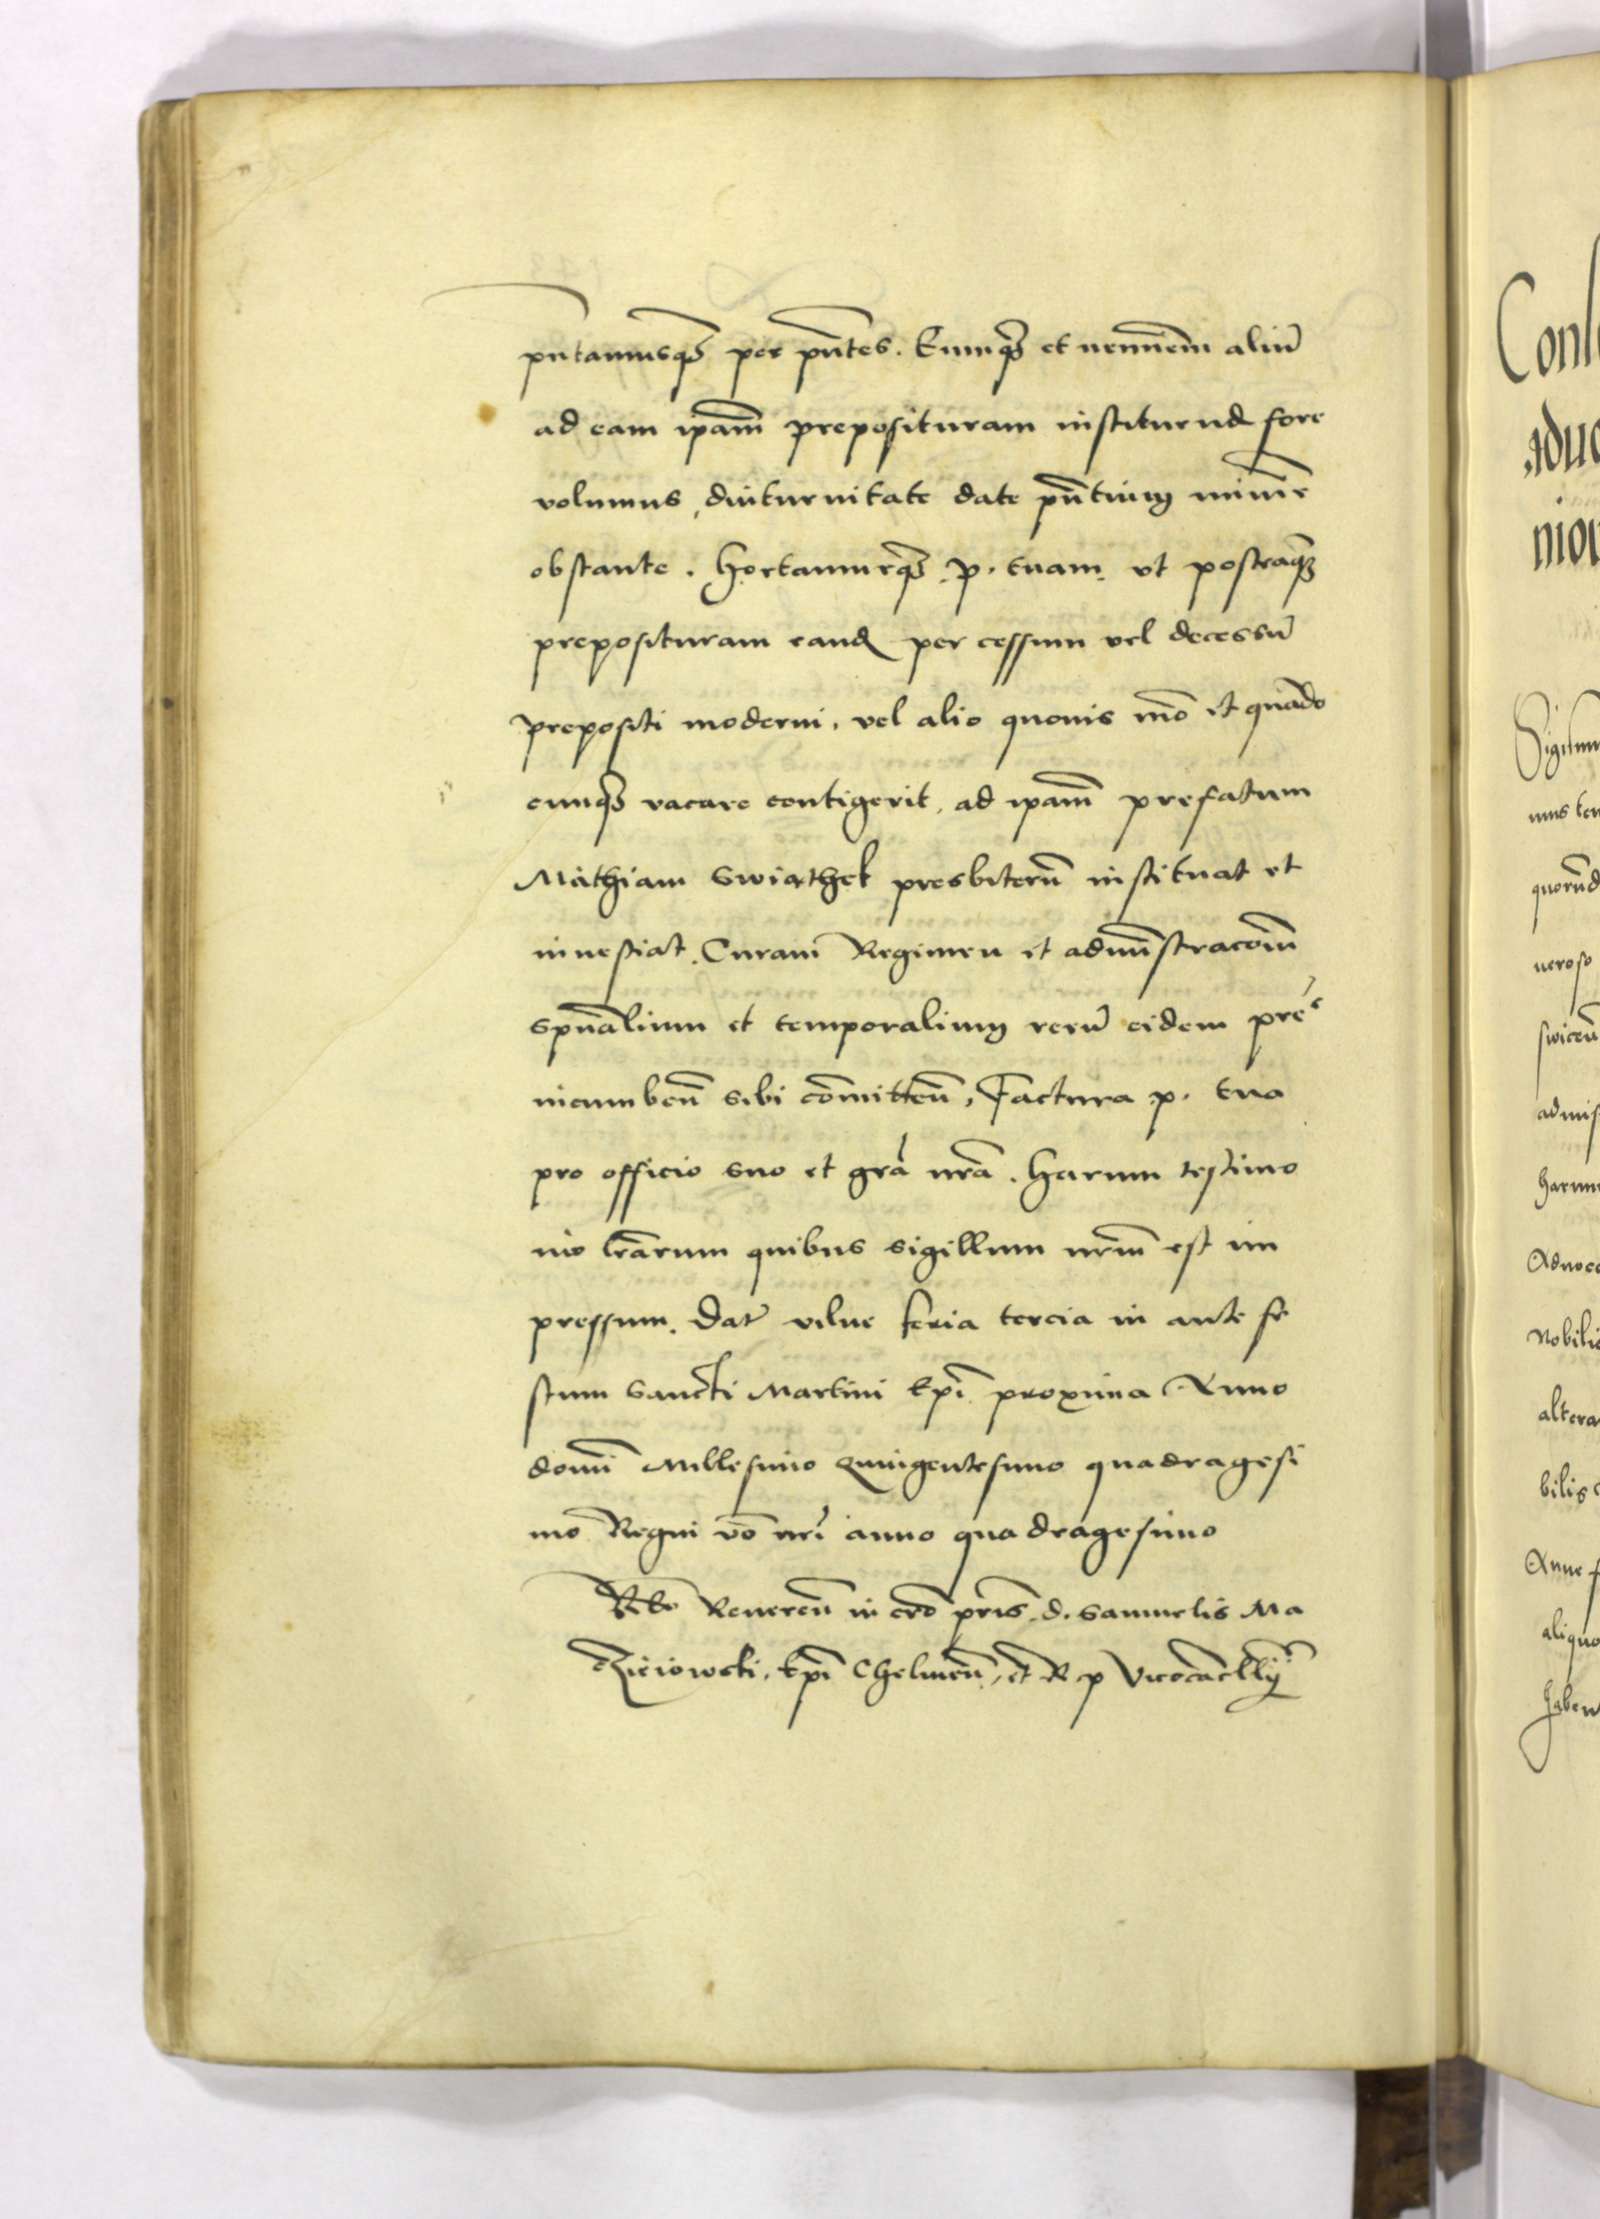 pn̄tamusq̢ per pn̄tes. Eumq̢ et neminem aliū
ad eam ipām preposituram instituend fore
volumus, diuturnitate date pn̄tium minīe
obstante. Hortamurq̢. p. tuam. vt posteaq̄
preposituram eand per cessum vel decessū
prepositi moderni, vel alio quouis mō et quādo
cunq̢ vacare contigerit, ad ipām prefatum
Mathiam Swiąthek presbiterū instituat et
inuestiat. Curam Regimen et admīstracōem
spūalium et temporalium rerū eidem pre
incumbeñ sibi cōmitteñ, Factura p. tua
pro officio suo et grā nrā. Harum testimo
nio lrārum quibus sigillum nrm̄ est im
pressum. Dat vilne feria tercia in ante fe
stum Sancti Martini Epī proxima Anno
domī Millesimo Quingentesimo quadragesi
mo Regni vō nrī anno quadragesimo
Rlo Reuereñ in crō prīs. d. Samuelis Ma
cziejowski, Epī Chelmeñ, et R p Vicecācellӯ
Sigism
Nobili
altera
bilis
aliquo